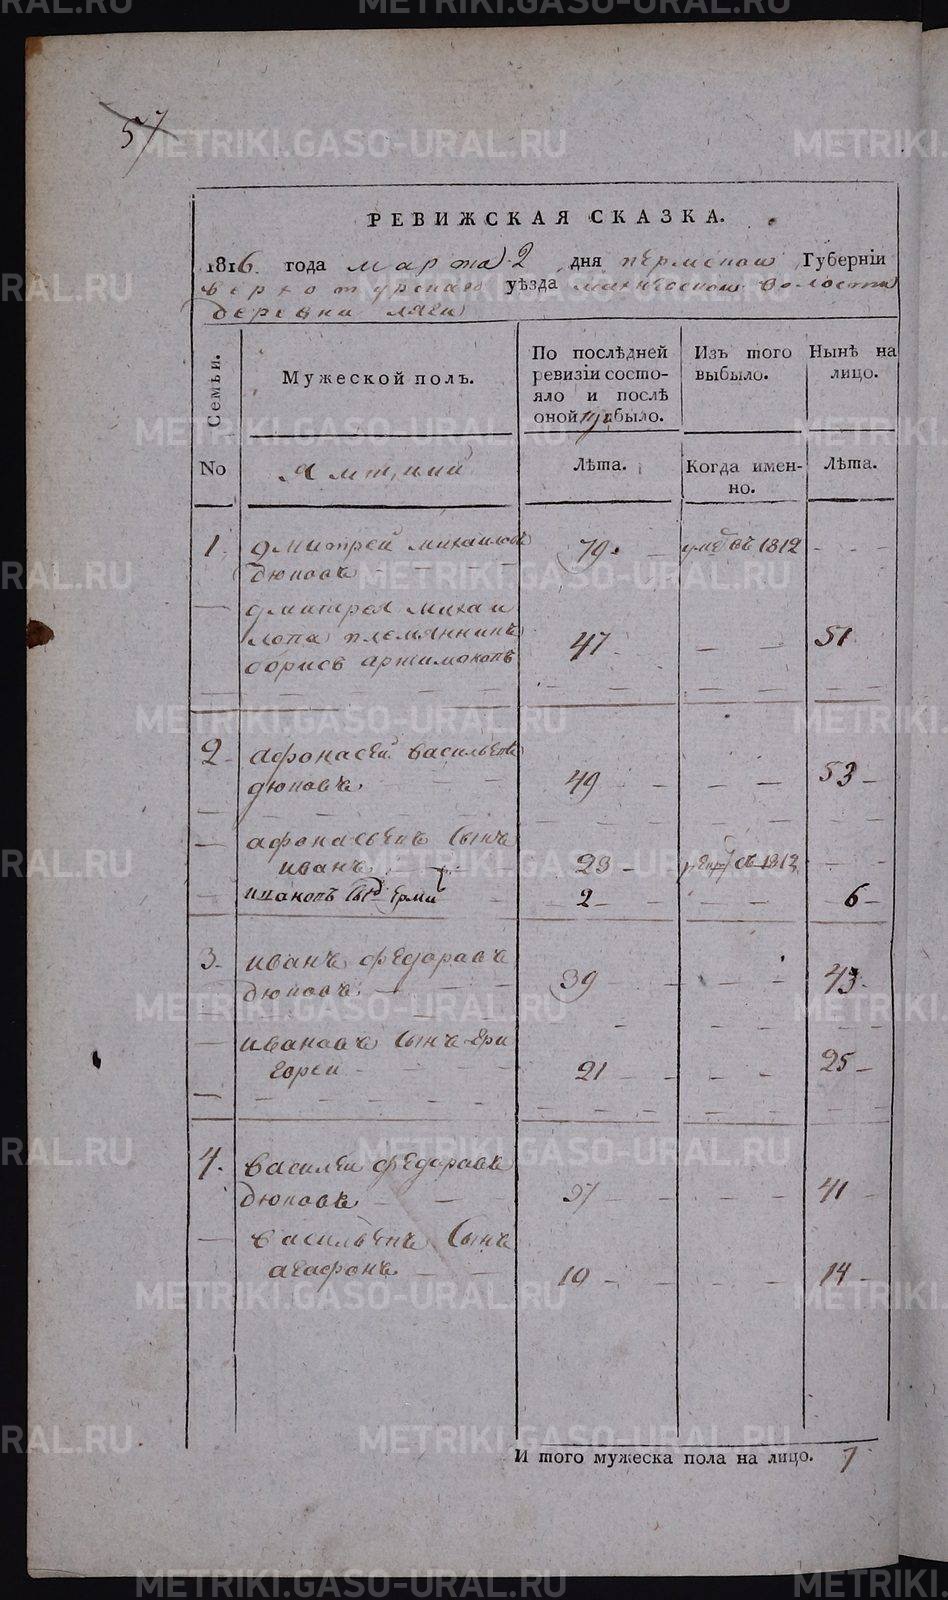 57
РЕВИЖСКАЯ СКАЗКА.
1816 года марта 2 дня пермской Губернїи
верхотурскаго уѣзда махневской волости
деревни
Семьи.
Мужеской полъ.
По послѣдней ревизїи состояло и послѣ оной прибыло.
Изъ того выбыло.
Нынѣ на лицо.
No
Лѣта.
Когда именно.
Лѣта.
1. дмитрей михаиловъ 79. умре въ 1812
дюковъ
дмитрея михаи
лова племянникъ
борисъ артимоновъ 47 51
2 афонасей васильевъ
дюковъ 49 53
афонасьевъ сынъ
иванъ 23 рекр въ 1812
ивановъ сынъ 2 6
3. иванъ федоровъ
дюковъ 39 43
ивановъ сынъ гри
горей 21 25
4. василеи федоровъ
дюковъ 37 41
васильевъ сынъ
агафонъ 10 14
И того мужеска пола на лицо. 7
METRIKI.GASO-URAL.RU